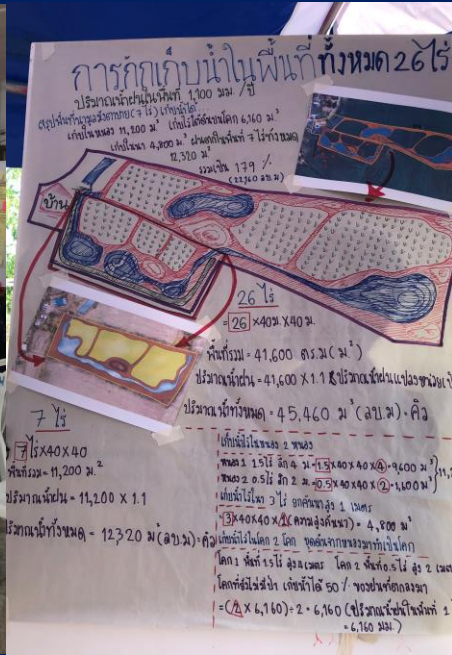 การกักเก็บน้ำในพื้นที่ทั้งหมด 26 ไร่
ปริมาณน้ำฝนในพื้นที่ 1,100 มม./ปี
เก็บในหนอง 11,200 ม³ เก็บไว้ได้บนโคก 6,160 ม³
เก็บในนา 4,800 ม³ ฝนตกในพื้นที่ 7 ไร่ทั้งหมด
12,320 ม³
รวมเป็น 179 %
(22,160 ลบ.ม)
บ้าน
26 ไร่
= 26 ×40ม.×40ม.
พื้นที่รวม = 41,600 ตร.ม (ม²)
ปริมาณน้ำฝน = 41,600 × 1.1
ปริมาณน้ำทั้งหมด = 45,460 ม³ (ลบ.ม) • คิว
7 ไร่
7 ไร่×40×40
พื้นที่รวม = 11,200 ม.²
ปริมาณน้ำฝน = 11,200 × 1.1
ปริมาณน้ำทั้งหมด = 12320 ม³(ลบ.ม) • คิว
เก็บน้ำไว้ในหนอง 2 หนอง
หนอง 1 1.5ไร่ ลึก 4 ม. = 1.5×40×40×4 = 9,600 ม³
หนอง 2 0.5ไร่ ลึก 2 ม. = 0.5×40×40×2 = 1,600 ม³
เก็บน้ำไว้ในนา 3 ไร่ ยกคันนาสูง 1 เมตร
3×40×40×1(ความสูงคันนา) = 4,800 ม³
เก็บน้ำไว้ในโคก 2 โคก ขุดดินจากหนองมาทำเป็นโคก
โคก 1 พื้นที่ 1.5ไร่ สูง 4 เมตร โคก 2 พื้นที่ 0.5ไร่ สูง 2
เก็บน้ำได้ 50 % ของฝนที่ตกลงมา
=(2 × 6,160)÷2 = 6,160 (ปริมาณน้ำฝนในพื้นที่
= 6,160 มม.)